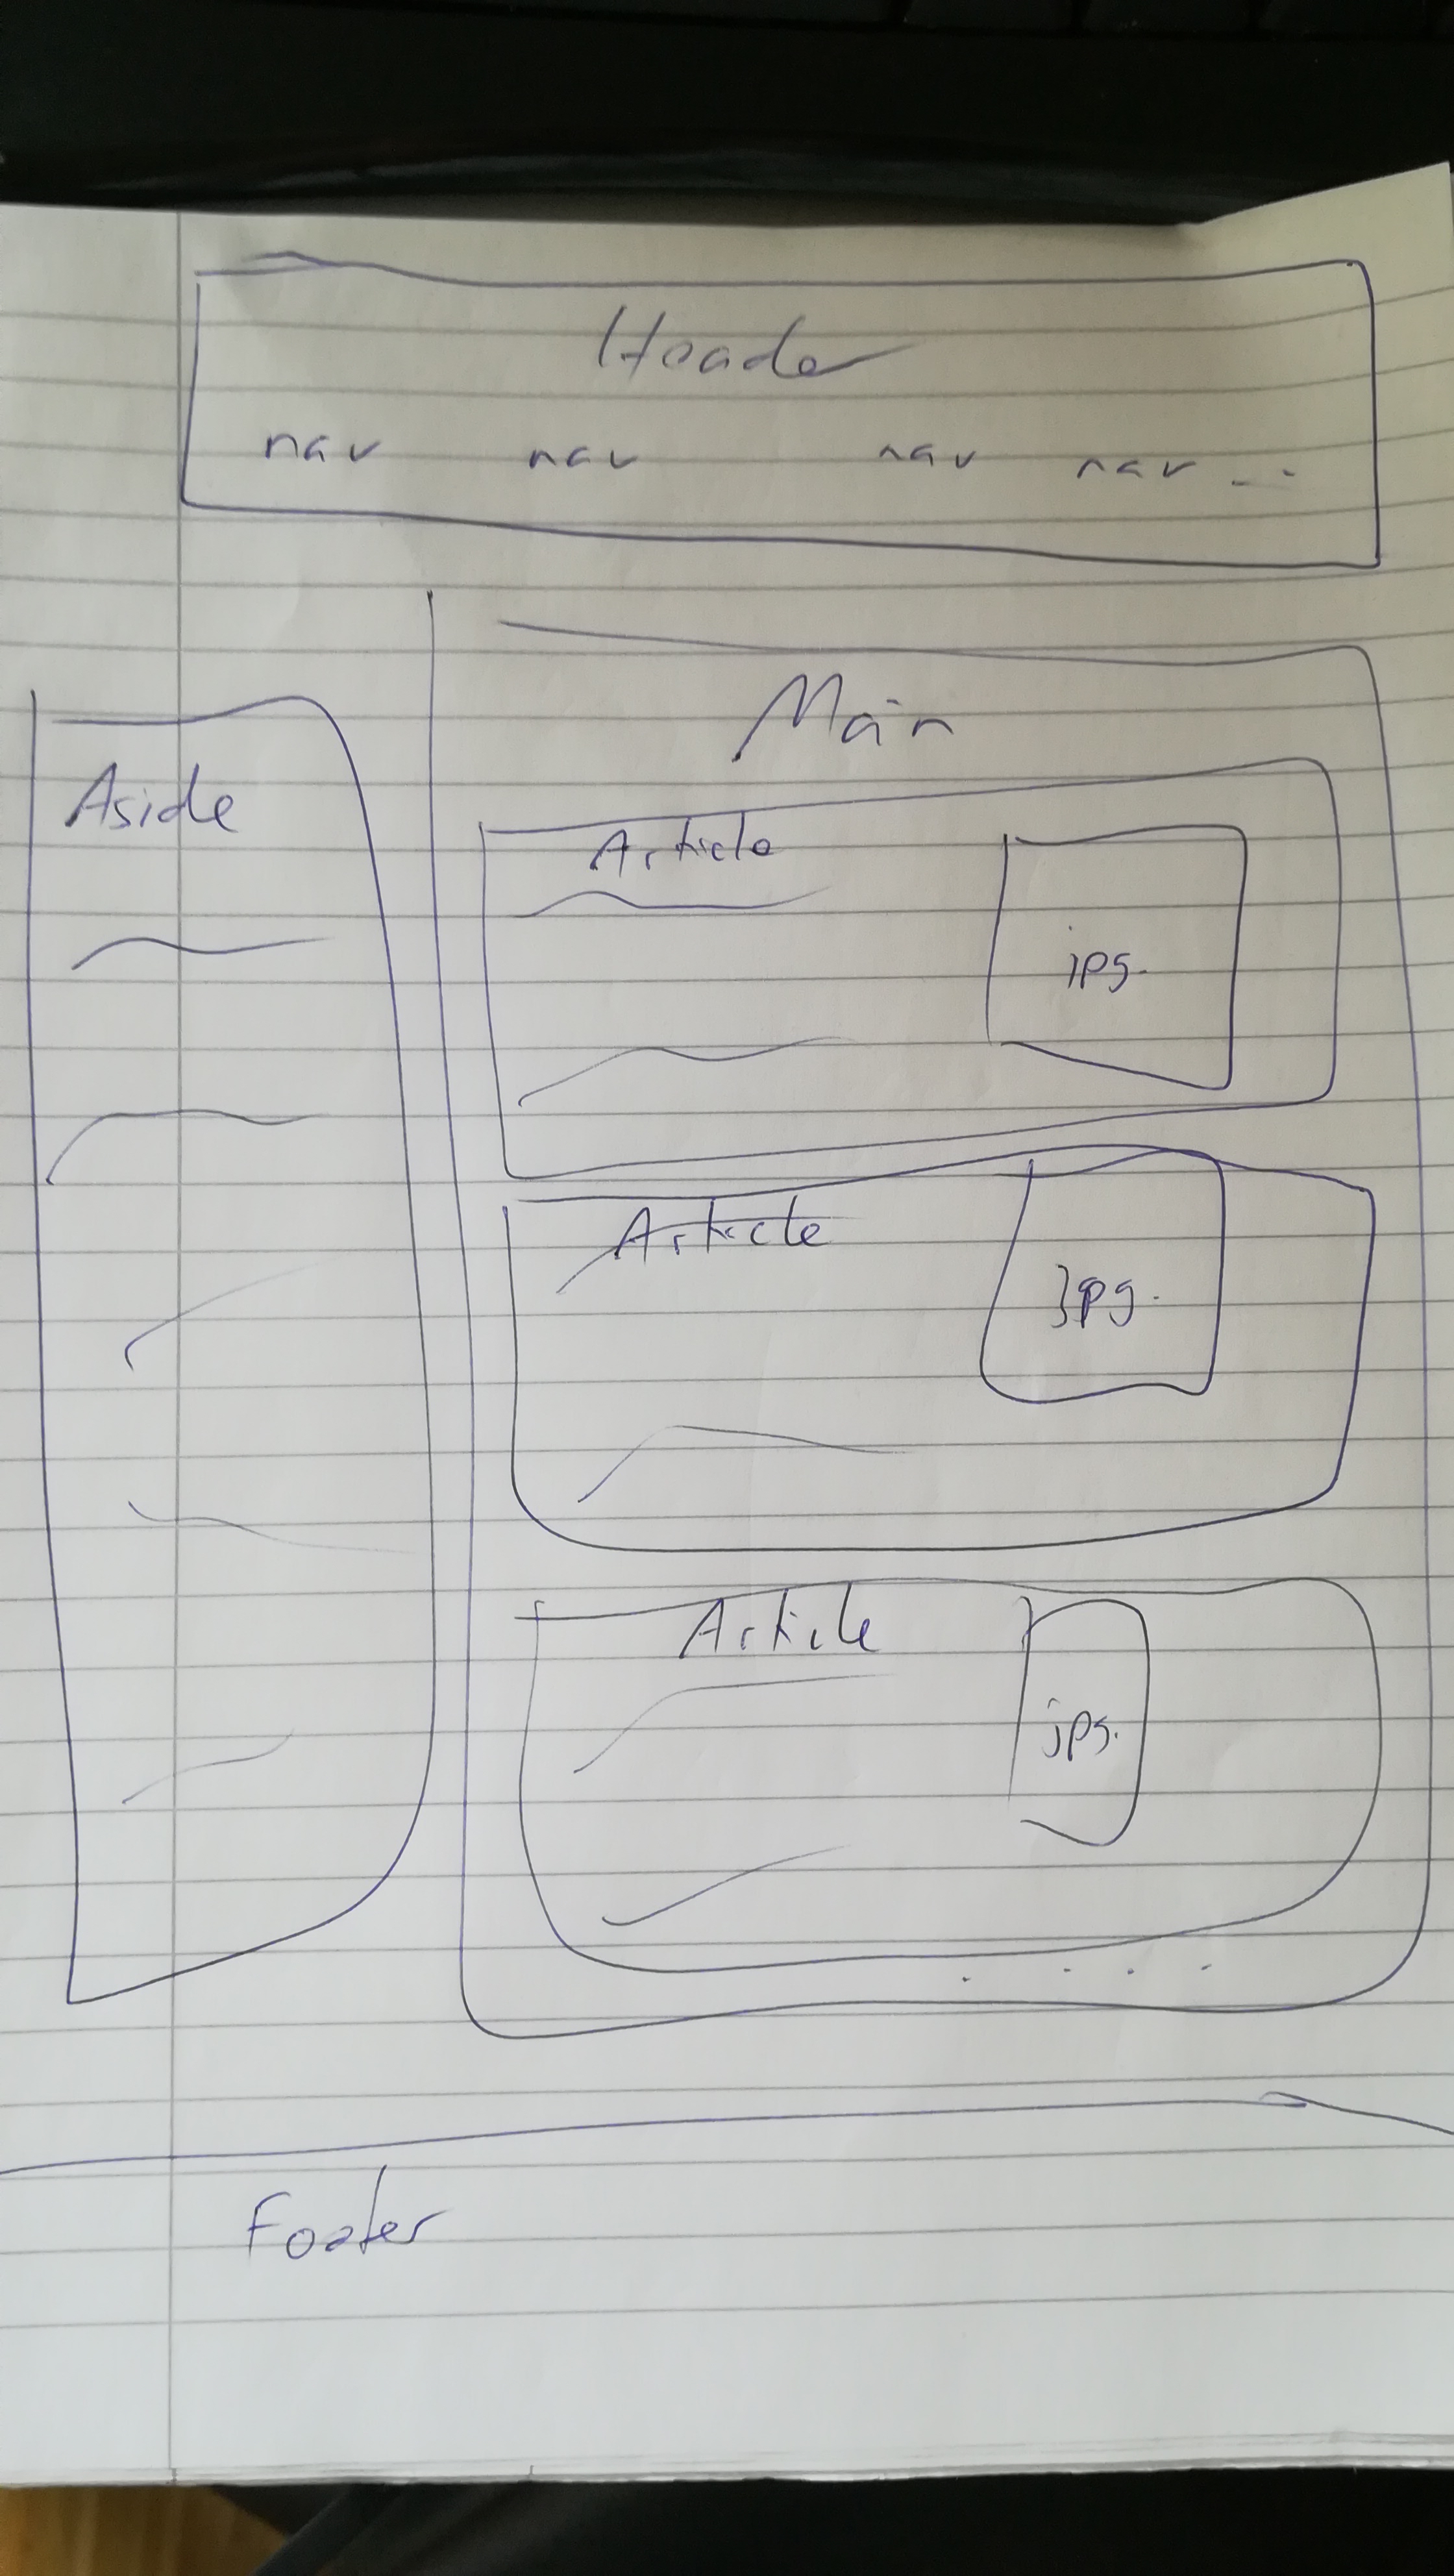 Header
nav nav nav nav ...
Main
Aside
Article
jpg.
Article
jpg.
Article
jpg.
. . . .
Footer